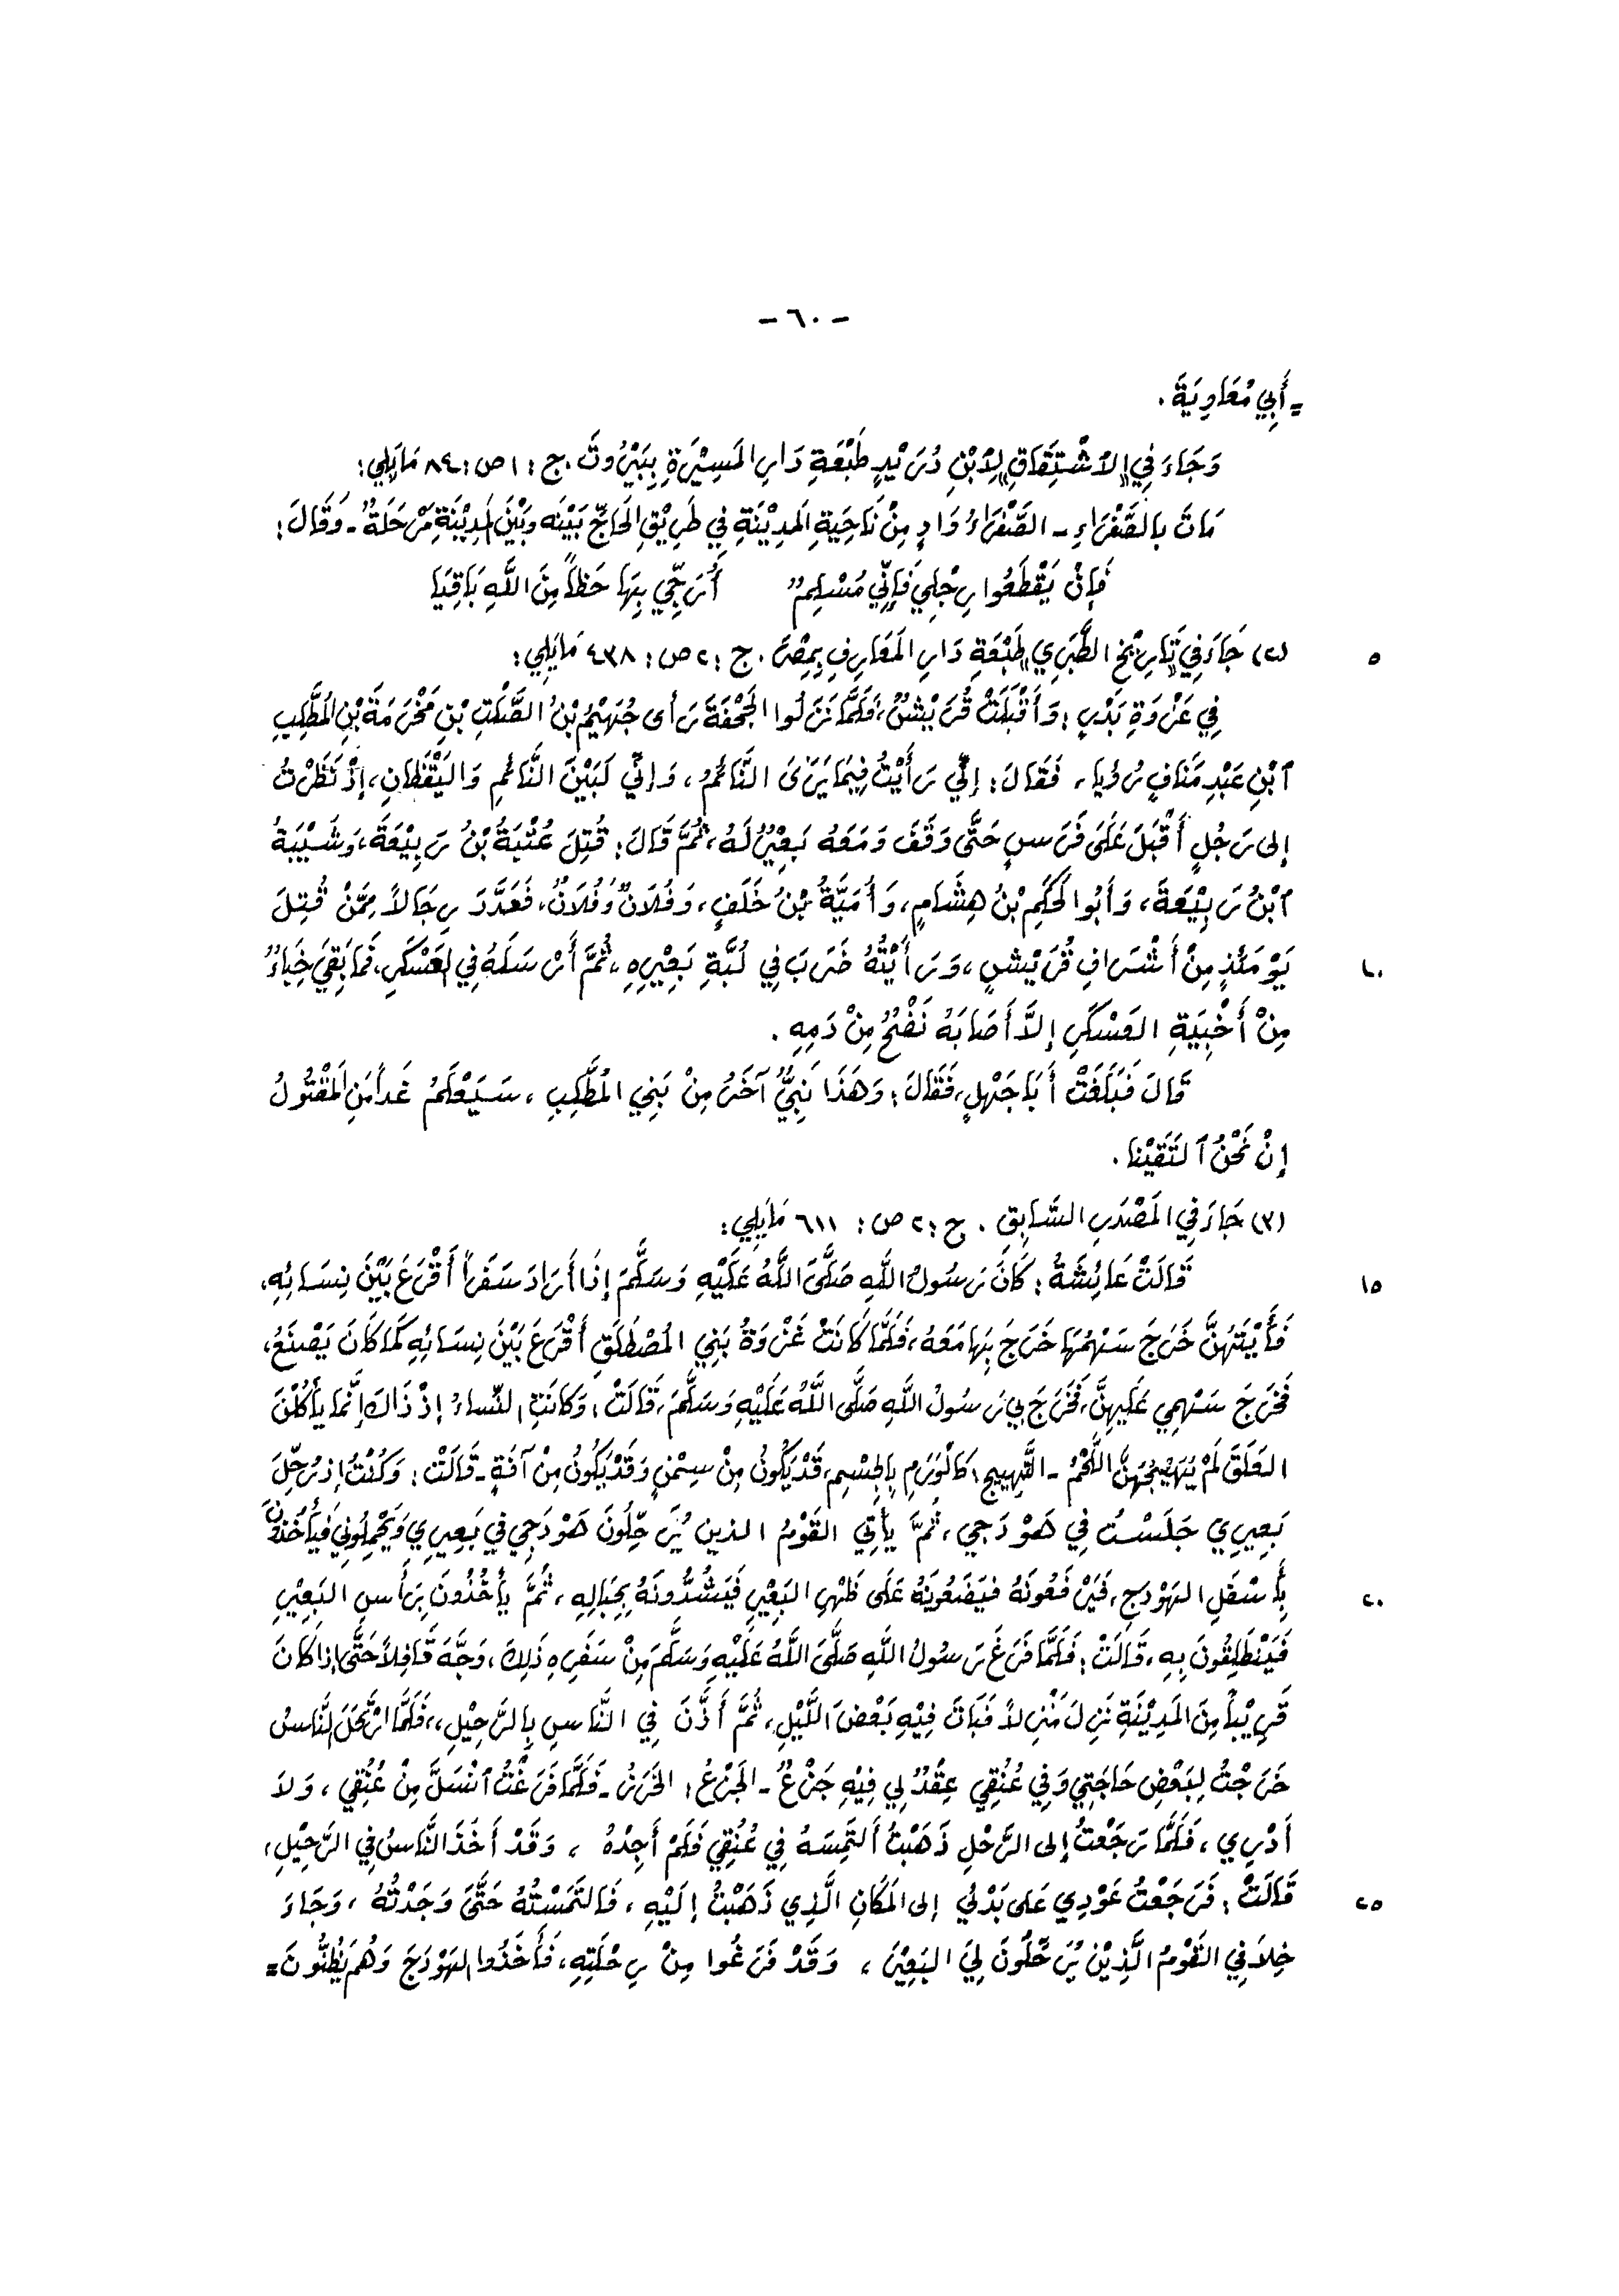 - ٦٠ -
= أَبِي مُعَاوِيَةَ .
وَجَاءَ فِي «الاشْتِقَاقِ» لِابْنِ دُرَيْدٍ طَبْعَةِ دَارِ المَسِيْرَةِ بِبَيْرُوتَ . ج : ١ ص : ٨٤ مَايَلِي :
مَاتَ بِالصَّفْرَاءِ - الصَّفْرَاءُ وَادٍ مِنْ نَاحِيَةِ المَدِيْنَةِ فِي طَرِيْقِ الحَاجِّ بَيْنَه وَبَيْنَ المَدِيْنَةِ مَرْحَلَةٌ - وَقَالَ :
فَإِنْ يَقْطَعُوا رِجْلِي فَإِنِّي مُسْلِمٌ أُرَجِّي بِهَا حَظّاً مِنَ اللَّهِ بَاقِيَا
٥ (٢) جَاءَ فِي «تَارِيْخِ الطَّبَرِي» طَبْعَةِ دَارِ المَعَارِفِ بِمِصْرَ . ج : ٢ ص : ٤٣٨ مَايَلِي :
فِي غَزْوَةِ بَدْرٍ : وَأَقْبَلَتْ قُرَيْشٌ ، فَلَمَّا نَزَلُوا الجُحْفَةَ رَأَى جُهَيْمُ بْنُ الصَّلْتِ بْنِ مَخْرَمَةَ بْنِ المُطَّلِبِ
ٱبْنِ عَبْدِ مَنَافٍ رُؤْيَا ، فَقَالَ : إِنِّي رَأَيْتُ فِيمَا يَرَىَ النَّائِمُ ، وَإِنِّي لَبَيْنَ النَّائِمِ وَاليَقْظَانِ ، إِذْ نَظَرْتُ
إِلى رَجُلٍ أَقْبَلَ عَلَى فَرَسٍ حَتَّى وَقَفَ وَمَعَهُ بَعِيْرٌ لَهُ ، ثُمَّ قَالَ : قُتِلَ عُتْبَةُ بْنُ رَبِيْعَةَ ، وَشَيْبَةُ
ٱبْنُ رَبِيْعَةَ ، وَأَبُو الحَكَمِ بْنُ هِشَامٍ ، وَأُمَيَّةُ بْنُ خَلَفٍ ، وَفُلَانٌ وَفُلَانٌ ، فَعَدَّدَ رِجَالاً مِمَّنْ قُتِلَ
١٠ يَوْمَئِذٍ مِنْ أَشْرَافِ قُرَيْشٍ ، وَرَأَيْتُهُ ضَرَبَ فِي لُبَّةِ بَعِيْرِهِ ، ثُمَّ أَرْسَلَهُ فِي العَسْكَرِ ، فَمَا بَقِيَ خِبَاءٌ
مِنْ أَخْبِيَةِ العَسْكَرِ إِلاَّ أَصَابَهُ نَفْحٌ مِنْ دَمِهِ .
قَالَ فَبَلَغَتْ أَبَا جَهْلٍ ، فَقَالَ : وَهَذَا نَبِيٌّ آخَرُ مِنْ بَنِي المُطَّلِبِ ، سَيَعْلَمُ غَداً مَنِ المَقْتُولُ
إِنْ نَحْنُ ٱلتَقَيْنَا .
(٣) جَاءَ فِي المَصْدَرِ السَّابِقِ . ج : ٢ ص : ٦١١ مَايَلِي :
١٥ قَالَتْ عَائِشَةُ : كَانَ رَسُولُ اللَّهِ صَلَّى اللَّهُ عَلَيْهِ وَسَلَّمَ إِذَا أَرَادَ سَفَراً أَقْرَعَ بَيْنَ نِسَائِهِ ،
فَأَيَّتُهُنَّ خَرَجَ سَهْمُهَا خَرَجَ بِهَا مَعَهُ ، فَلَمَّا كَانَتْ غَزْوَةُ بَنِي المُصْطَلَقِ أَقْرَعَ بَيْنَ نِسَائِهِ كَمَا كَانَ يَصْنَعُ ،
فَخَرَجَ سَهْمِي عَلَيهِنَّ ، فَخَرَجَ بِي رَسُولُ اللَّهِ صَلَّى اللَّهُ عَلَيْهِ وَسَلَّمَ ، قَالَتْ : وَكَانَتِ النِّسَاءُ إِذْ ذَاكَ إِنَّمَا يَأْكُلْنَ
العَلَقَ لَمْ يُهَيِّجْهُنَّ اللَّحْمُ - التَّهِييجِ : كَالوَرَمِ بِالجِسْمِ ، قَدْ يَكُونُ مِنْ سِمَنٍ وَقَدْ يَكُونُ مِنْ آفَةٍ - قَالَتْ : وَكُنْتُ إِذ رُحِّلَ
بَعِيرِي جَلَسْتُ فِي هَوْدَجِي ، ثُمَّ يَأْتِي القَوْمُ الذين يُرَحِّلُونَ هَوْدَجِي فِي بَعِيرِي وَيَحْمِلُونِي فَيَأْخُذُونَ
٢٠ بِأَسْفَلِ الهَوْدَجِ ، فَيَرْفَعُونَهُ فَيَضَعُونَهُ عَلَى ظَهْرِ البَعِيْرِ فَيَشُدُّونَهُ بِحِبَالِهِ ، ثُمَّ يَأْخُذُونَ بِرَأْسِ البَعِيْرِ
فَيَنْطَلِقُونَ بِهِ ، قَالَتْ : فَلَمَّا فَرَغَ رَسُولُ اللَّهِ صَلَّى اللَّهُ عَلَيْهِ وَسَلَّمَ مِنْ سَفَرِهِ ذَلِكَ ، وَجَّهَ قَافِلاً حَتَّى إِذَا كَانَ
قَرِيْباً مِنَ المَدِيْنَةِ نَزَلَ مَنْزِلاً فَبَاتَ فِيْهِ بَعْضَ اللَّيْلِ ، ثُمَّ أَذَّنَ فِي النَّاسِ بِالرَّحِيْلِ ، فَلَمَّا ارْتَحَلَ النَّاسُ
خَرَجْتُ لِبَعْضِ حَاجَتِي وَفِي عُنُقِي عِقْدٌ لِي فِيْهِ جَزْعٌ - الجَزْعُ : الخَرَزُ - فَلَمَّا فَرَغْتُ ٱنْسَلَّ مِنْ عُنُقِي ، وَلاَ
أَدْرِي ، فَلَمَّا رَجَعْتُ إِلى الرَّحْلِ ذَهَبْتُ أَلتَمِسَهُ فِي عُنُقِي فَلَمْ أَجِدْهُ ، وَقَدْ أَخَذَ النَّاسُ فِي الرَّحِيْلِ ،
٢٥ قَالَتْ : فَرَجَعْتُ عَوْدِي عَلى بَدْئِي إِلى المَكَانِ الَّذِي ذَهَبْتُ إِلَيْهِ ، فَالتَمَسْتُهُ حَتَّى وَجَدْتُهُ ، وَجَاءَ
خِلاَفِي القَوْمُ الَّذِيْنَ يُرَحِّلُونَ لِيَ البَعِيْرَ ، وَقَدْ فَرَغُوا مِنْ رِحْلَتِهِ ، فَأَخَذُوا الهَوْدَجَ وَهُم يَظُنُّونَ =